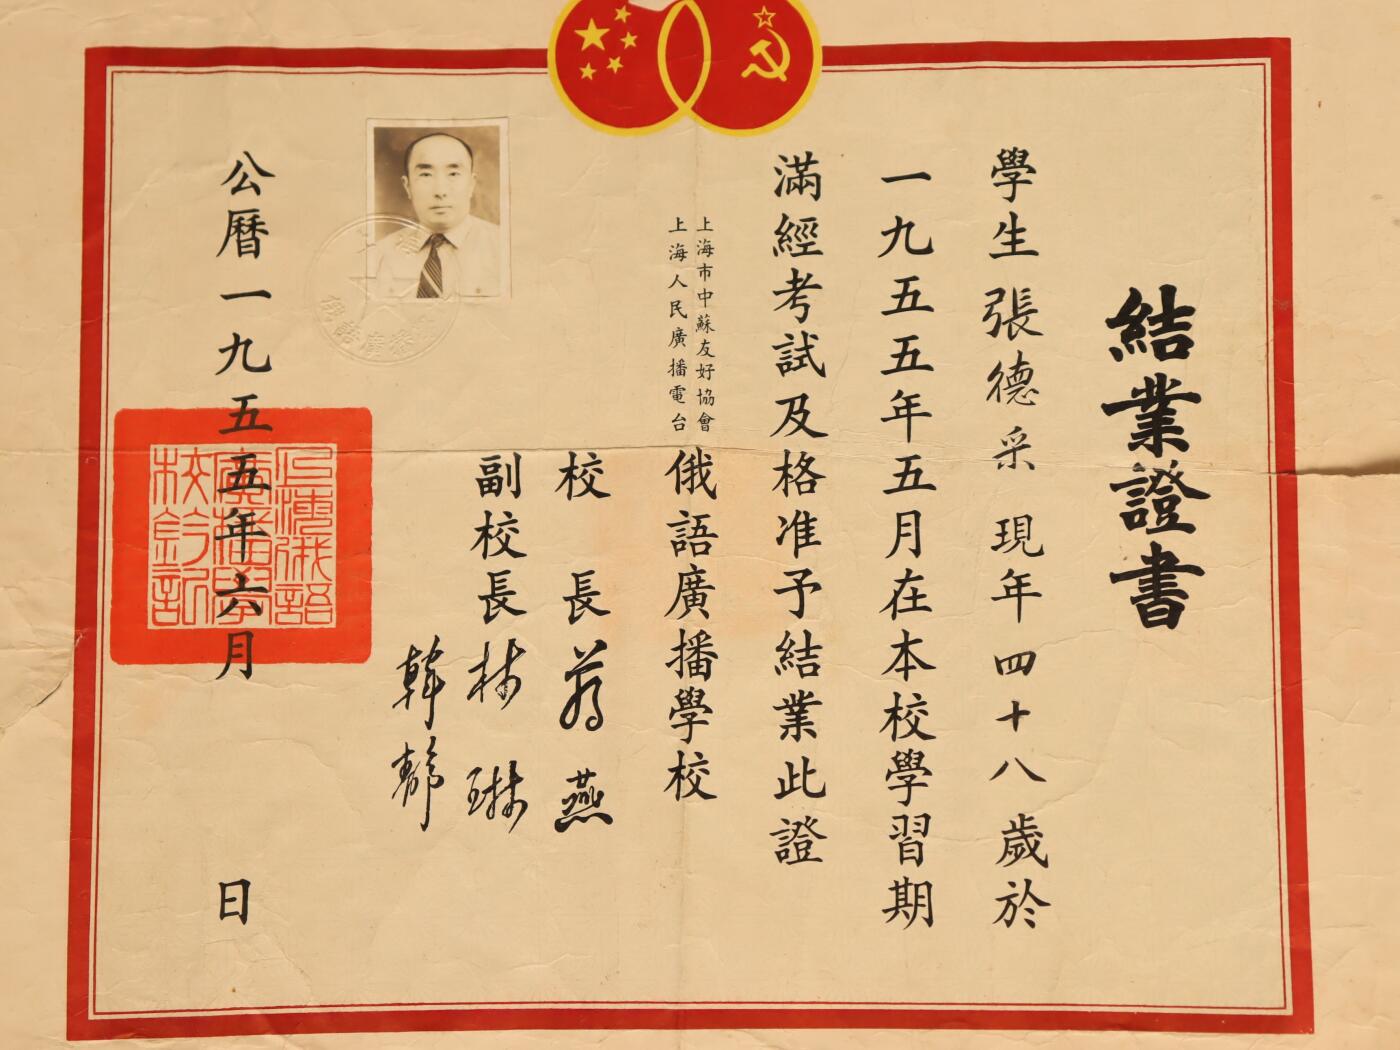 結業證書
學生張德采現年四十八歲於
一九五五年五月在本校學習期
滿經考試及格准予結業此證
上海市中蘇友好協會
上海人民廣播電台
俄語廣播學校
校長蔣燕
副校長林琳
韓靜
公曆一九五五年六月 日
上海俄語
廣播學
校鈐記
上海
俄語廣播